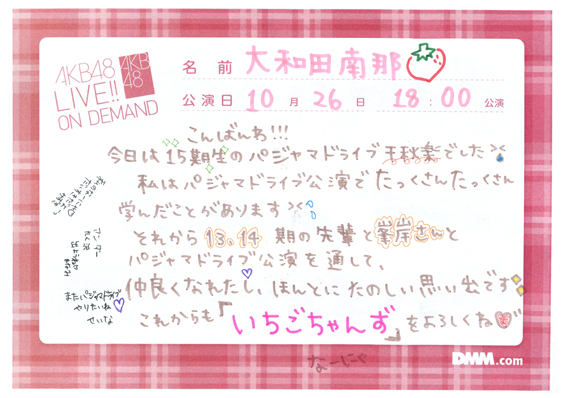 AKB48
LIVE!!
ON DEMAND
AKB
48
名前 大和田南那
公演日 10月26日 18:00公演
こんばんわ!!!
今日は15期生のパジャマドライブ千秋楽でした
私はパジャマドライブ公演でたっくさんたっくさん
学んだことがあります
それから13.14期の先輩と峯岸さんと
パジャマドライブ公演を通して、
仲良くなれたし、ほんとにたのしい思い出です
これからも『いちごちゃんず』をよろしくね
アンダー
またいパジャマ
やりたいね
せいな
なーにゃ
DMM.com